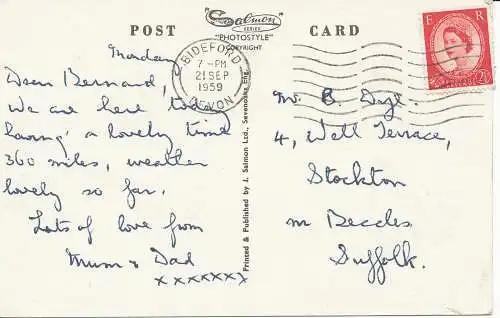 POST CARD
Salmon
SERIES
"PHOTOSTYLE"
COPYRIGHT
BIDEFORD
7 - PM
21 SEP
1959
DEVON
E R
2½ 2½
Monday
Dear Bernard,
We are here today
having a lovely time
360 miles, weather
lovely so far.
Lots of love from
Mum & Dad
xxxxxxx
Printed & Published by J. Salmon Ltd., Sevenoaks Eng.
Mr B Dye.
4, Well Terrace,
Stockton
nr Beccles
Suffolk.